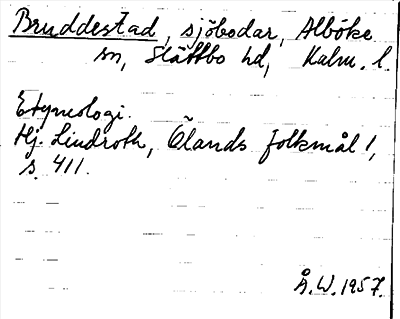 Bruddestad, sjöbodar, Alböke
sn, Slättbo hd, Kalm. l.
Etymologi.
Hj. Lindroth, Ölands folkmål 1,
s. 411.
Å.W. 1957.